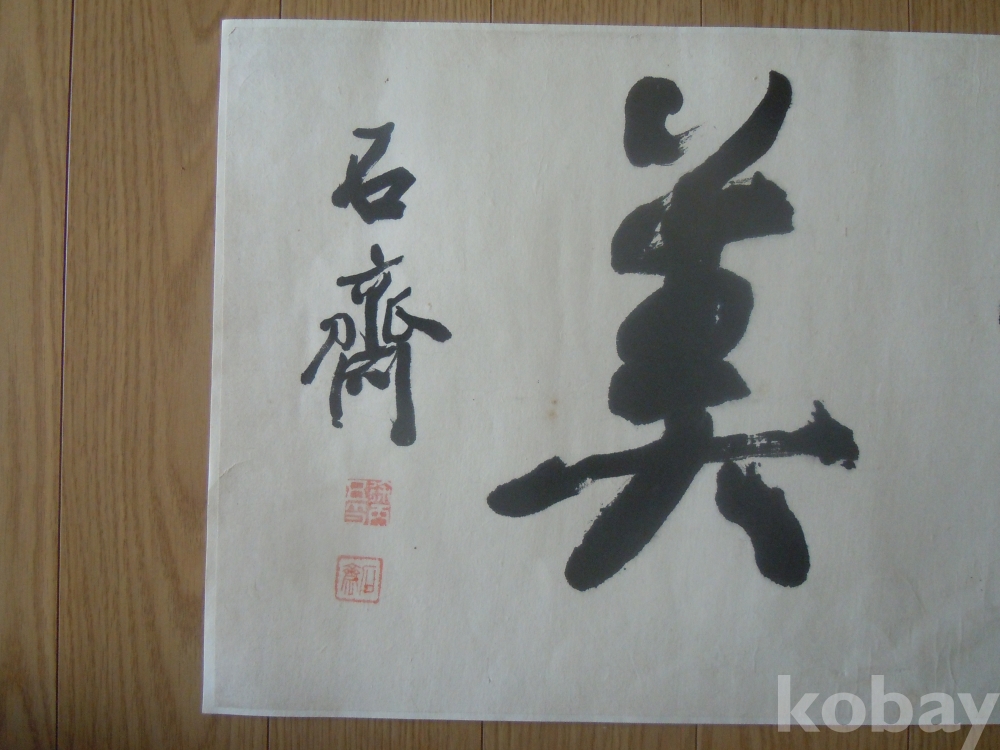 美
石齋
石齋
kobay